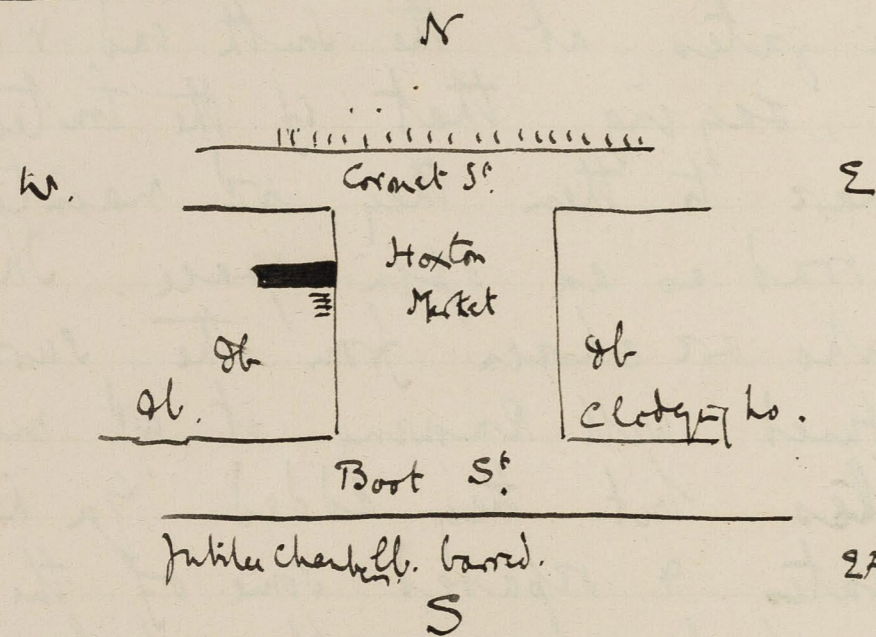 N
W.
Coronet St.
E
Hoxton
Market
db
db
db.
C lodging ho.
Boot St.
Jubilee Chambers. barred.
S